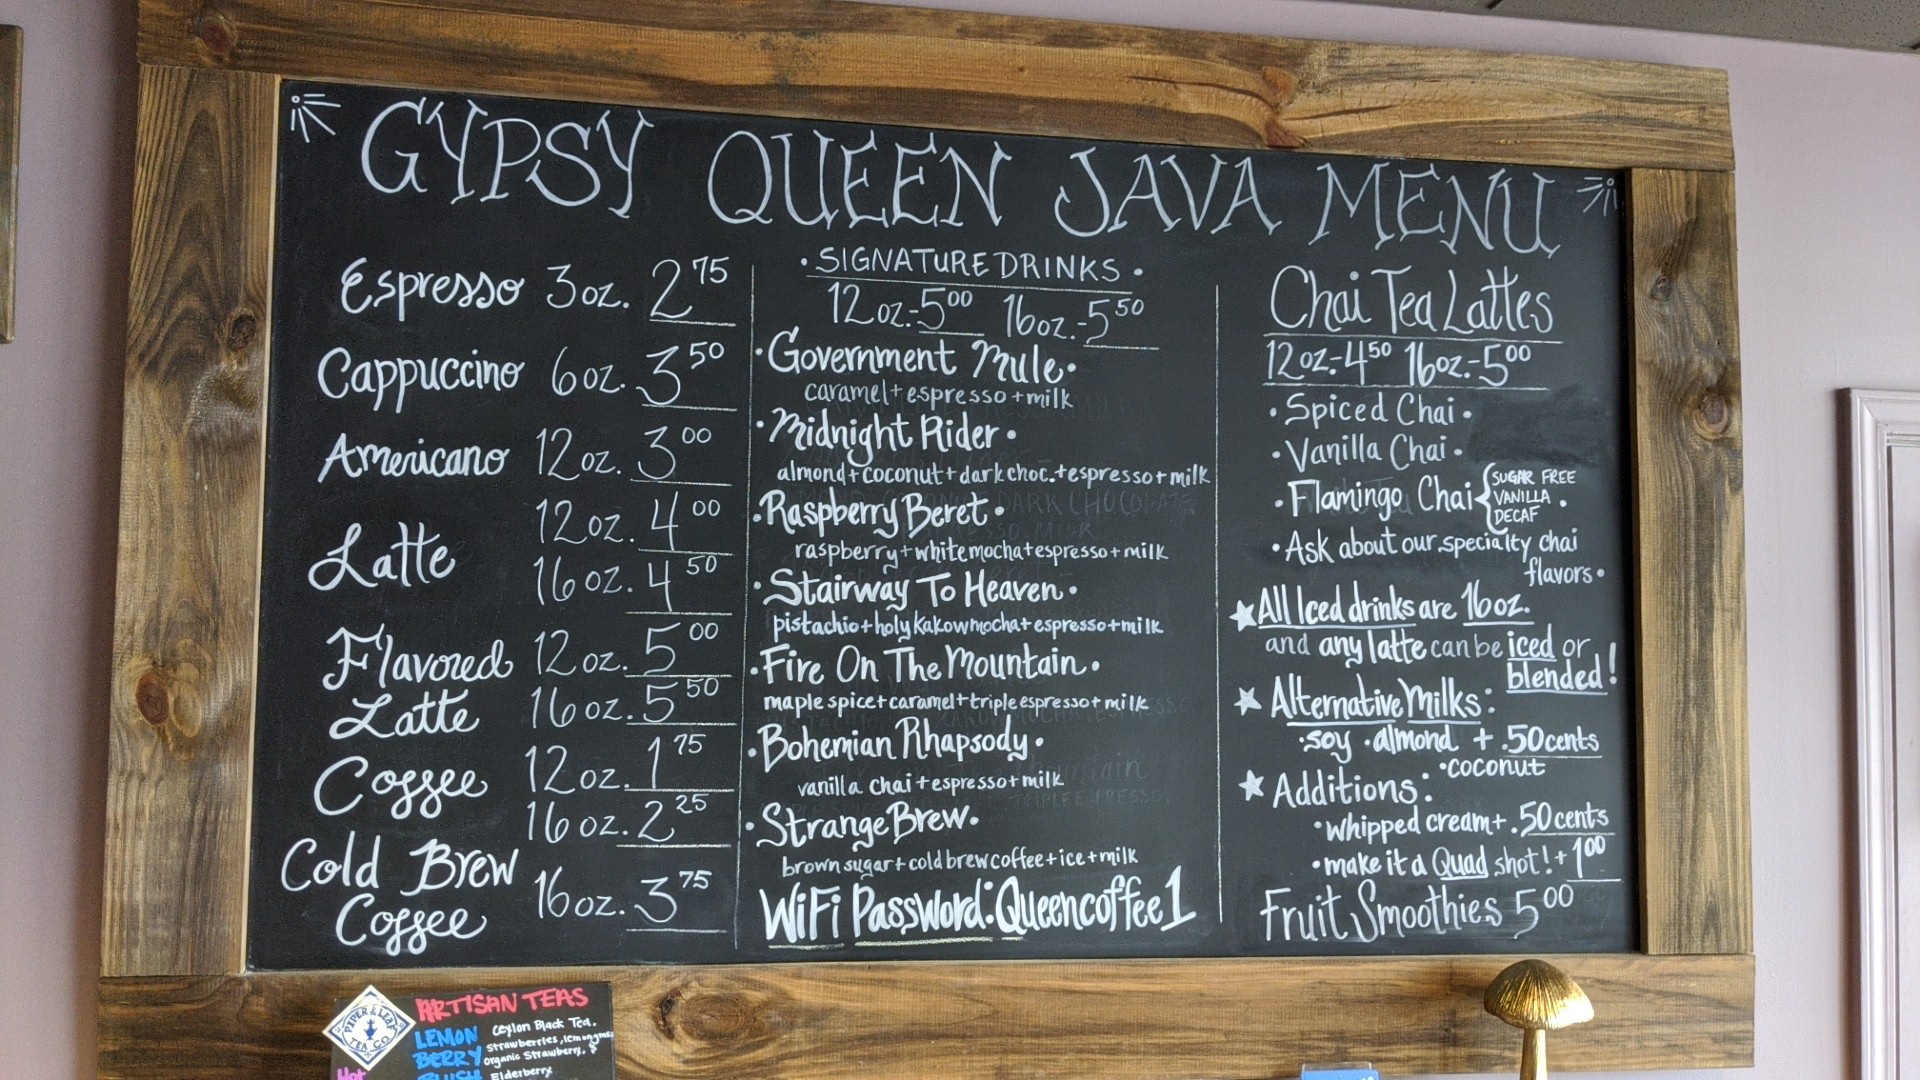 GYPSY QUEEN JAVA MENU
Espresso 3oz. 2 75
Cappuccino 6oz. 3 50
Americano 12oz. 3 00
Latte
12oz. 4 00
16oz. 4 50
Flavored Latte
12oz. 5 00
16oz. 5 50
Coffee
12oz. 1 75
16oz. 2 25
Cold Brew Coffee
16oz. 3 75
• SIGNATURE DRINKS •
12oz.-5 00 16oz.-5 50
• Government Mule •
caramel + espresso + milk
• Midnight Rider •
almond + coconut + dark choc. + espresso + milk
• Raspberry Beret •
raspberry + white mocha + espresso + milk
• Stairway To Heaven •
pistachio + holy kakow mocha + espresso + milk
• Fire On The Mountain •
maple spice + caramel + triple espresso + milk
• Bohemian Rhapsody •
vanilla chai + espresso + milk
• Strange Brew •
brown sugar + cold brew coffee + ice + milk
WiFi Password: Queencoffee1
Chai Tea Lattes
12oz.-4 50 16oz.-5 00
• Spiced Chai •
• Vanilla Chai •
• Flamingo Chai { SUGAR FREE
VANILLA
DECAF •
• Ask about our specialty chai
flavors •
★ All Iced drinks are 16oz.
and any latte can be iced or
blended!
★ Alternative Milks:
• soy • almond + .50 cents
• coconut
★ Additions:
• whipped cream + .50 cents
• make it a Quad shot! + 1 00
Fruit Smoothies 5 00
PIPER & LEAF
TEA CO.
ARTISAN TEAS
LEMON
BERRY
BLUSH
Ceylon Black Tea.
Strawberries, lemongrass
organic Strawberry, &
Elderberry
Hot